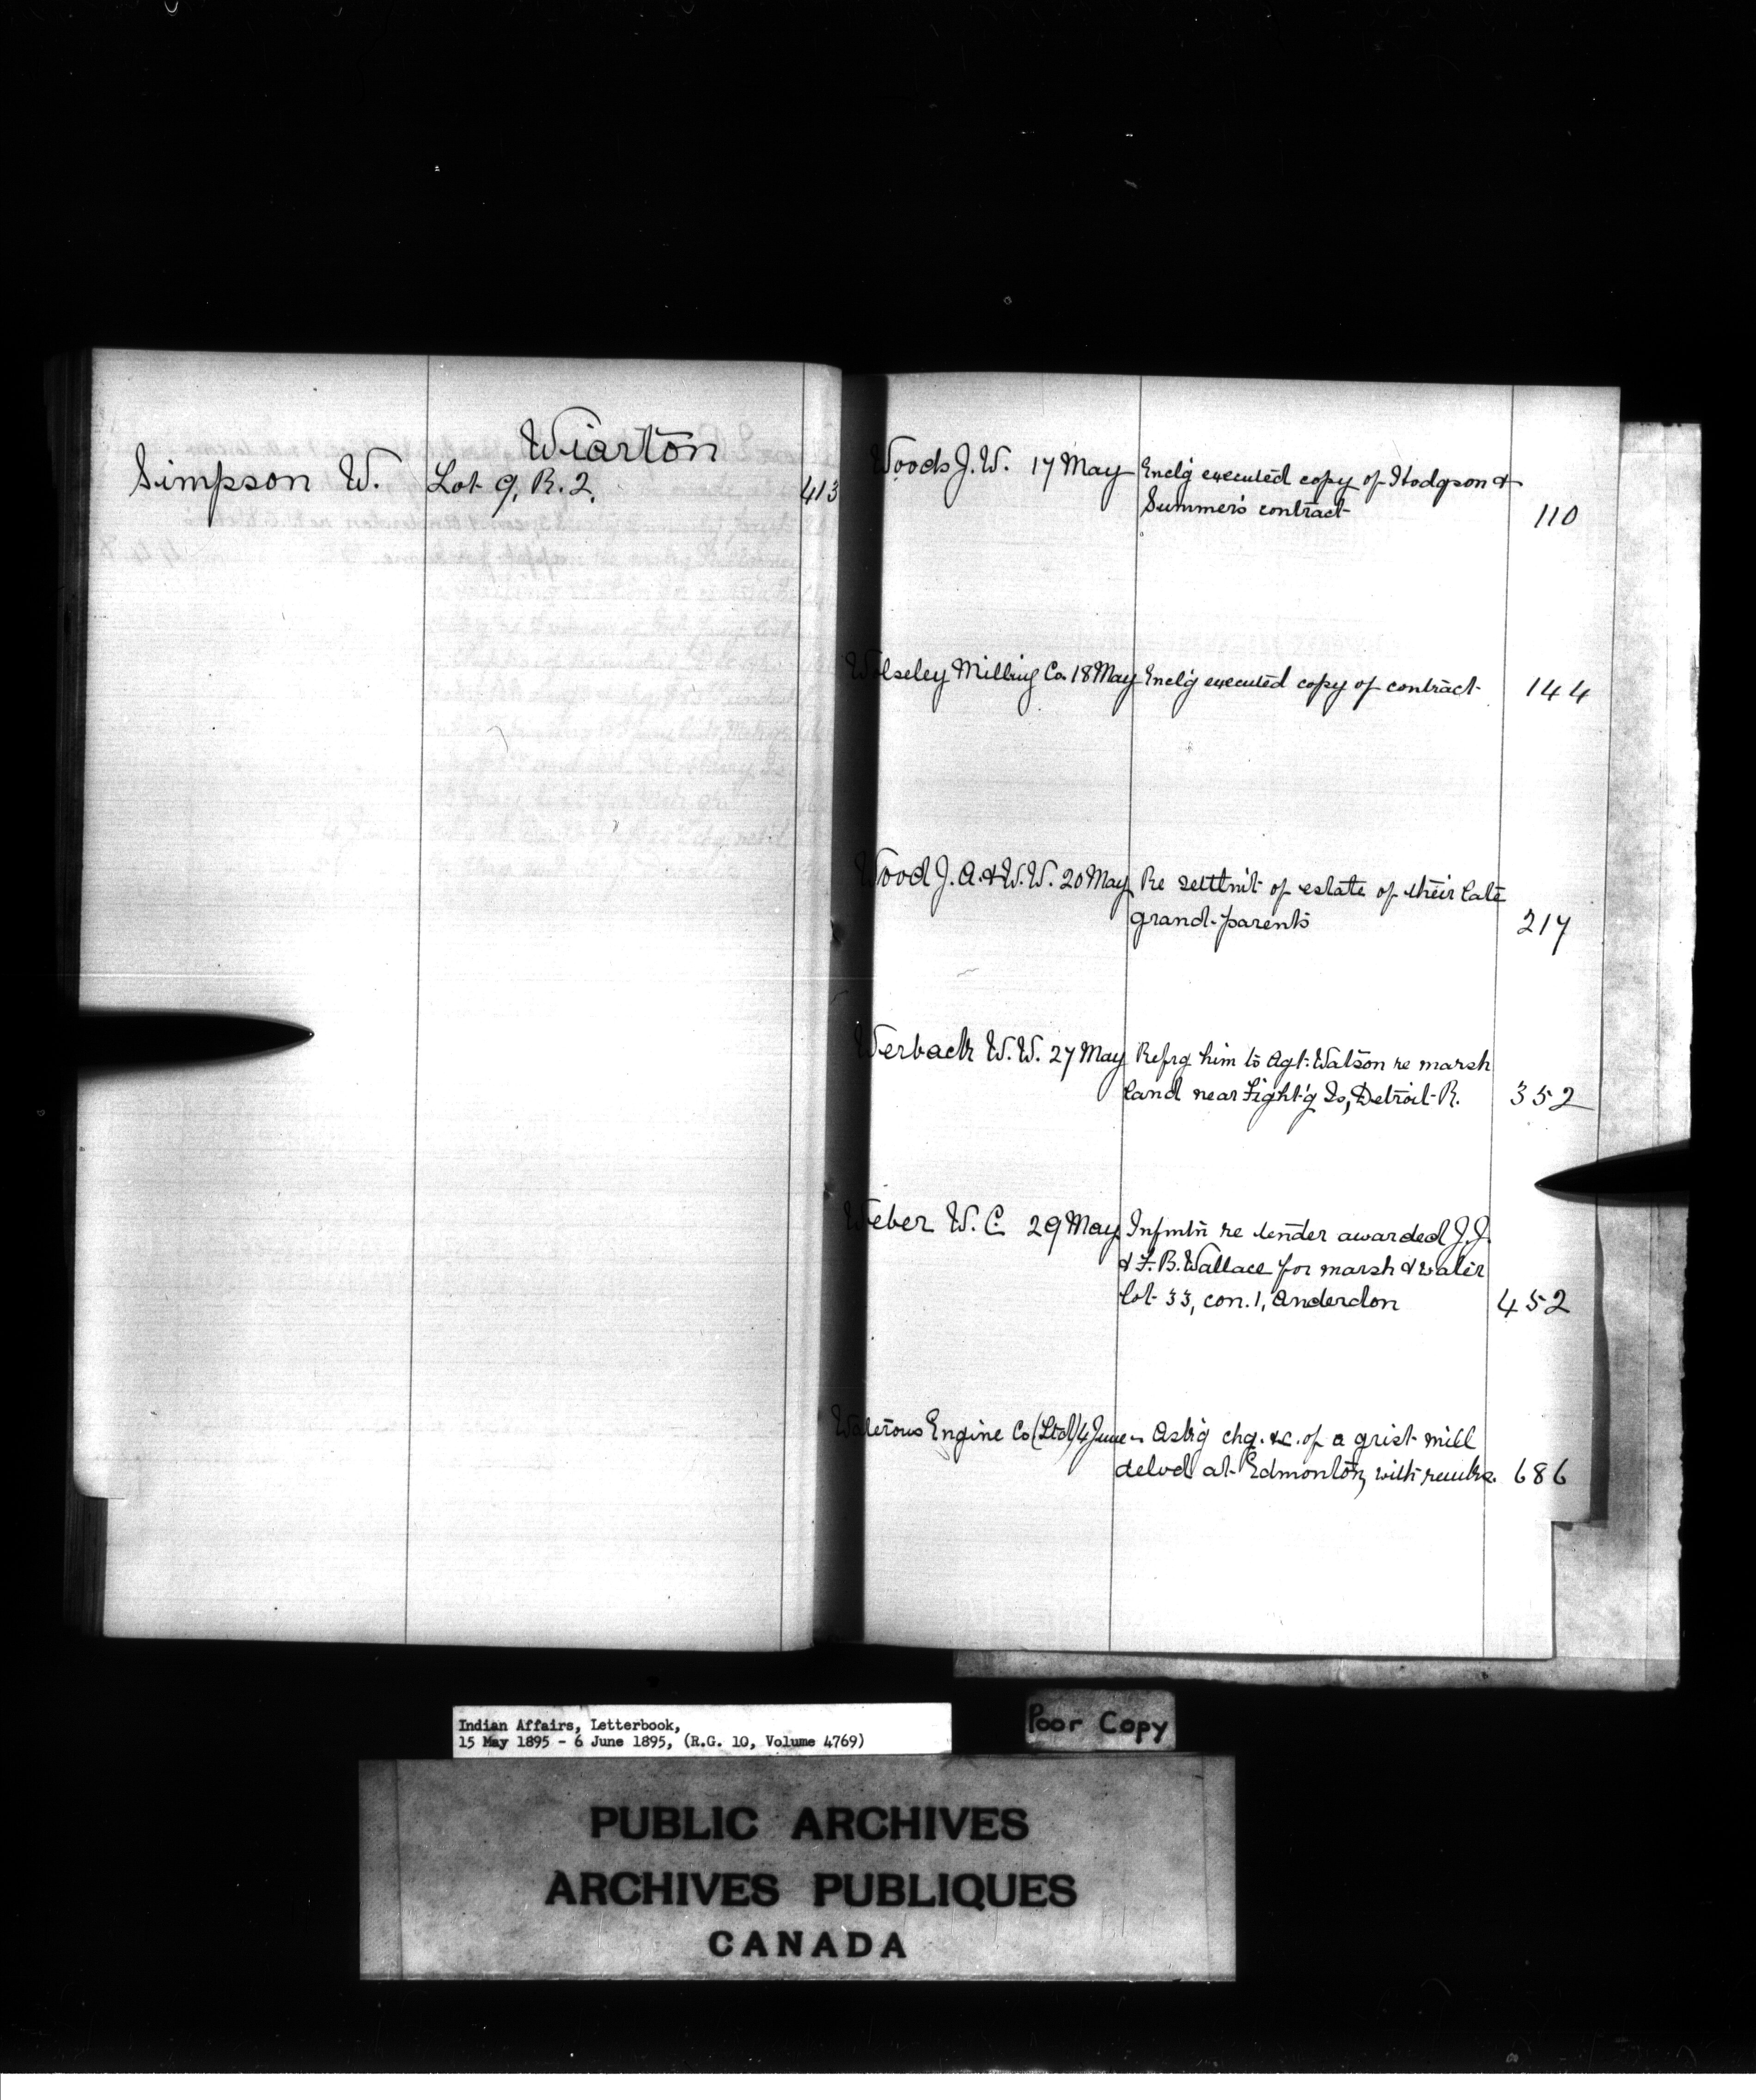 Wiarton
Simpson W. Lot 9, R. 2. 413
Woods J. W. 17 May Enclg executed copy of Hodgson &
Summer's contract 110
Wolseley Milling Co. 18 May Enclg executed copy of contract 144
Wood J. A. & W. W. 20 May Re settlm't of estate of their late
grand-parents 217
Werback W. W. 27 May Refrg him to Agt. Watson re marsh
land near Fight'g Is, Detroit R. 352
Weber W. C. 29 May Infmtn re tender awarded J. J.
& F. B. Wallace for marsh & water
lot 33, con. 1, Anderdon 452
Waterous Engine Co (Ltd) 4 June Askg chg. &c. of a grist mill
delvd at Edmonton, with 686
Indian Affairs, Letterbook,
15 May 1895 - 6 June 1895, (R.G. 10, Volume 4769)
Poor Copy
PUBLIC ARCHIVES
ARCHIVES PUBLIQUES
CANADA